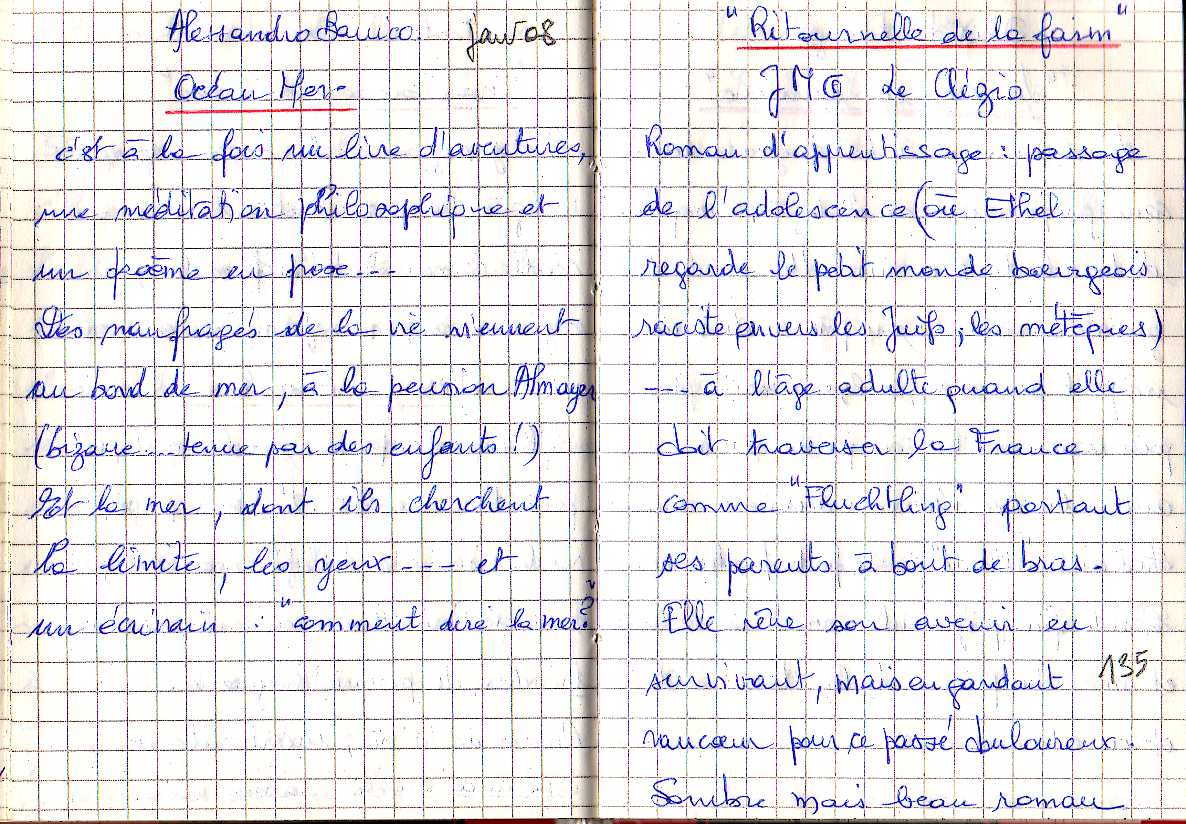 Alessandro Baricco. janv 08
Océan Mer-
c'est à la fois un livre d'aventures,
une méditation philosophique et
un poème en prose---
Des naufragés de la vie viennent
au bord de mer, à la pension Almayer
(bizarre---tenue par des enfants!)
Et la mer, dont ils cherchent
la limite, les yeux --- et
un écrivain : "comment dire la mer?"
"Ritournelle de la faim"
JMG Le Clézio
Roman d'apprentissage : passage
de l'adolescence (où Ethel
regarde le petit monde bourgeois
raciste envers les Juifs, les métèques)
--- à l'âge adulte quand elle
doit traverser la France
comme "Fluchtling" portant
ses parents à bout de bras.
Elle rêve son avenir en
survivant, mais en gardant
rancœur pour ce passé douloureux.
Sombre mais beau roman
135